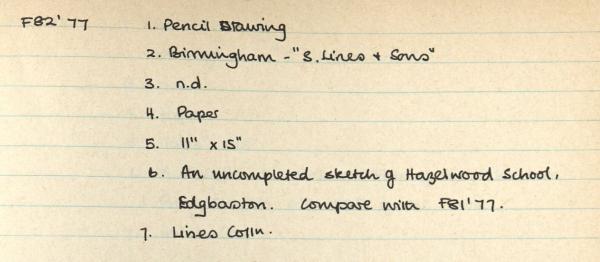 FB2'77 1. Pencil Drawing
2. Birmingham - "S. Lines + Sons"
3. n.d.
4. Paper
5. 11" x 15"
6. An uncompleted sketch of Hazelwood School,
Edgbaston. Compare with FB1'77.
7. Lines Colln.